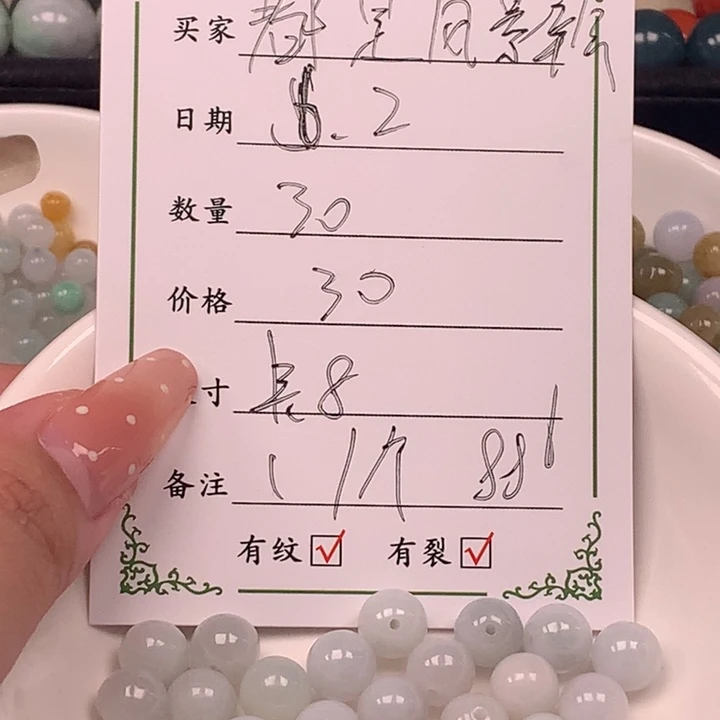 买家
日期 6.2
数量 30
价格 30
寸 长8
备注 1个 88
有纹 ☑ 有裂 ☑